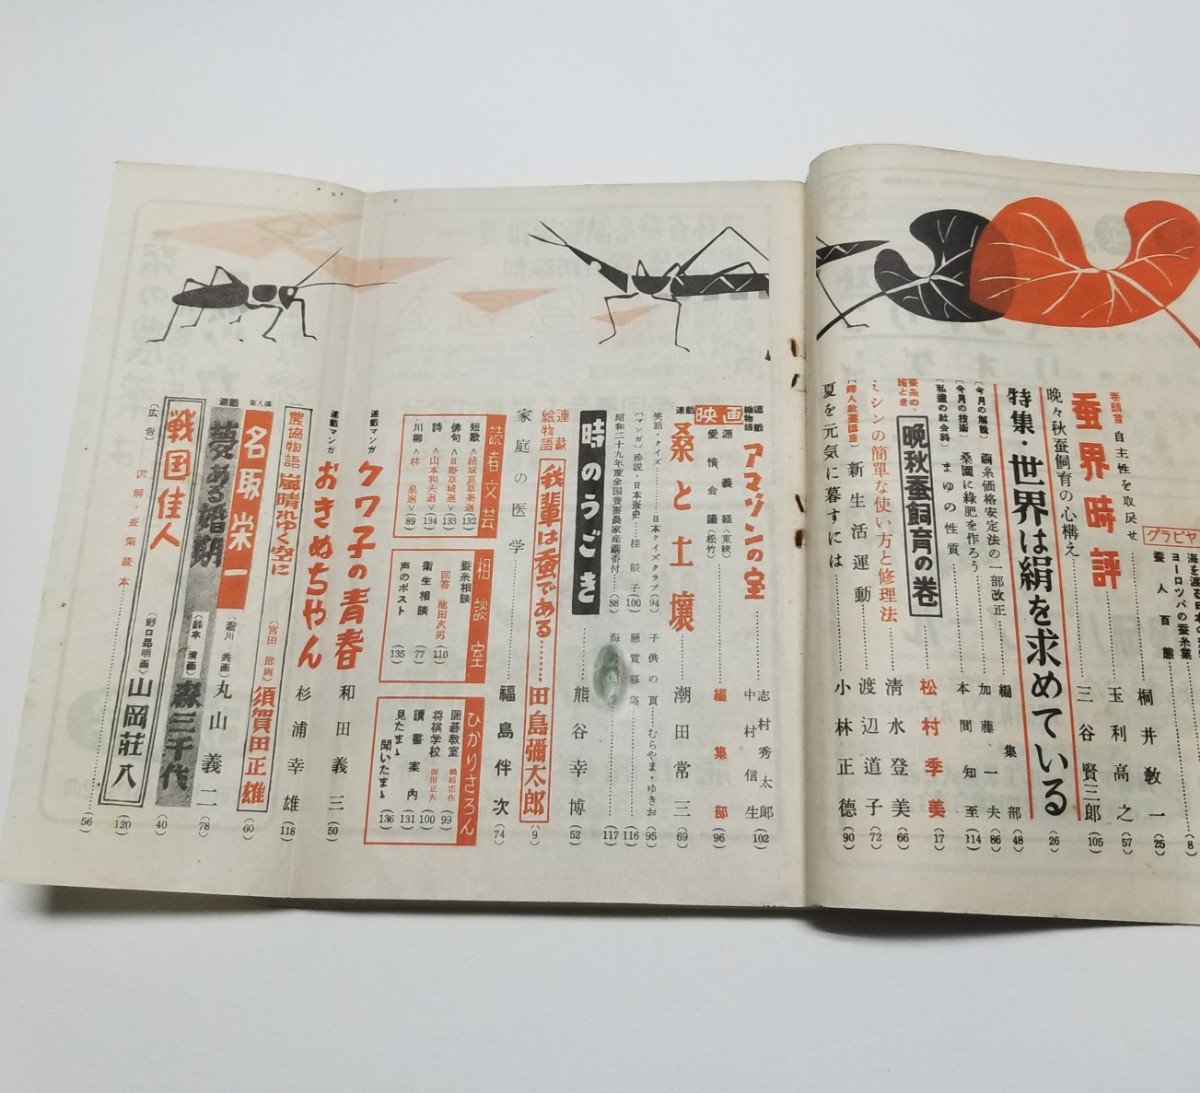 グラビヤ
蚕人百態
桐井敎一(25)
巻頭言 自主性を取戻せ
玉利高之(57)
蚕界時評
晩々秋蚕飼育の心構え
三谷賢三郎(105)
(26)
特集・世界は絹を求めている
編集部(48)
(今月の解説) 繭糸価格安定法の一部改正
加藤一夫(86)
(今月の技術) 桑園に緑肥を作ろう
本間知至(114)
(私達の社会科) まゆの性質
晩秋蚕飼育の巻
松村季美(17)
ミシンの簡単な使い方と修理法
清水登美(66)
(婦人敎養講座) 新生活運動
渡辺道子(72)
夏を元気に暮すには
小林正德(90)
連載絵物語
アマゾンの宝
志村秀太郎
中村信生(102)
映画
源義経(東映)
愛情会議(松竹)
編集部(96)
連載 桑と土壤
潮田常三(69)
笑話・クイズ……日本クイズクラブ(94)
子供の頁……むらやま・ゆきお(95)
(マンガ) 珍説・日本蚕史……桂辰子(100)
懸賞募集(116)
昭和二十九年度全国養蚕農家産繭番付……(88)
(117)
時のうごき
熊谷幸博(52)
連載絵物語
我輩は蚕である……田島彌太郎(9)
家庭の医学
福島伴次(74)
読者文芸
短歌<結城哀草果選>(132)
俳句<日野草城選>(133)
詩<山本和夫選>(134)
川柳<林 泉選>(89)
相談室
蚕糸相談
回答 池田次男(110)
衛生相談(77)
声のポスト(135)
ひかりさろん
囲碁敎室(99)
将棋学校(100)
讀書案内(131)
見たまゝ聞いたまゝ(136)
連載マンガ
クワ子の青春
和田義三(50)
連載マンガ
おきぬちやん
杉浦幸雄(118)
農協物語 嵐晴れゆく空に
須賀田正雄(60)
蚕人傳
名取栄一
丸山義二(78)
連載
夢ある婚期
(鈴木 湊画)
森三千代(40)
戦国佳人
(野口昂明画)
山岡荘八(120)
(広告) 図解・蚕桑読本
(56)